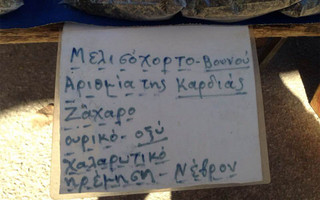 Μελισόχορτο-Βουνού
Αριθμία της Καρδιάς
Ζάχαρο
ουρικό-οξύ
χαλαρωτικό
ηρέμηση-Νέβρον